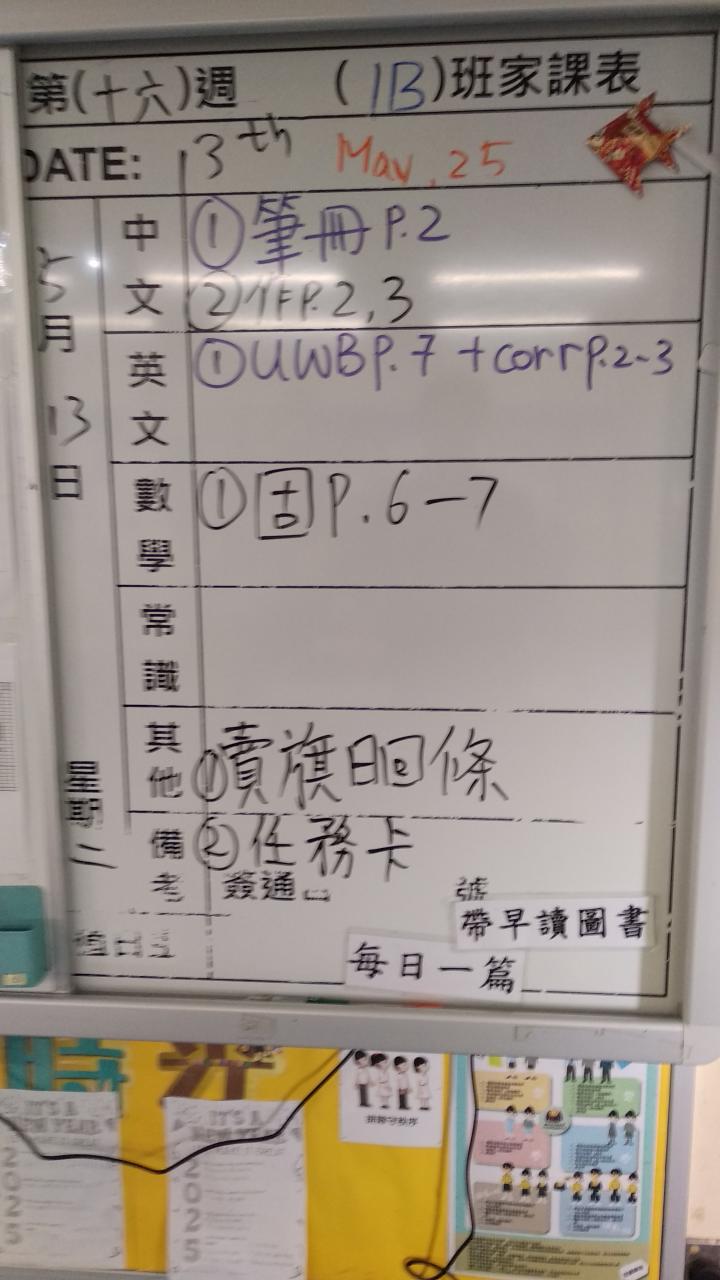 第(十六)週 (1B)班家課表
DATE: 13th May. 25
5月13日
星期二
中文 ①筆冊P.2
②作P.2,3
英文 ①UWB P.7 + corr P.2-3
數學 ①固P.6-7
常識
其他 ①賣旗日回條
備考 ②任務卡
簽通 號
帶早讀圖書
每日一篇
IT'S A
NEW YEAR
2025
IT'S A
NEW YEAR
2025